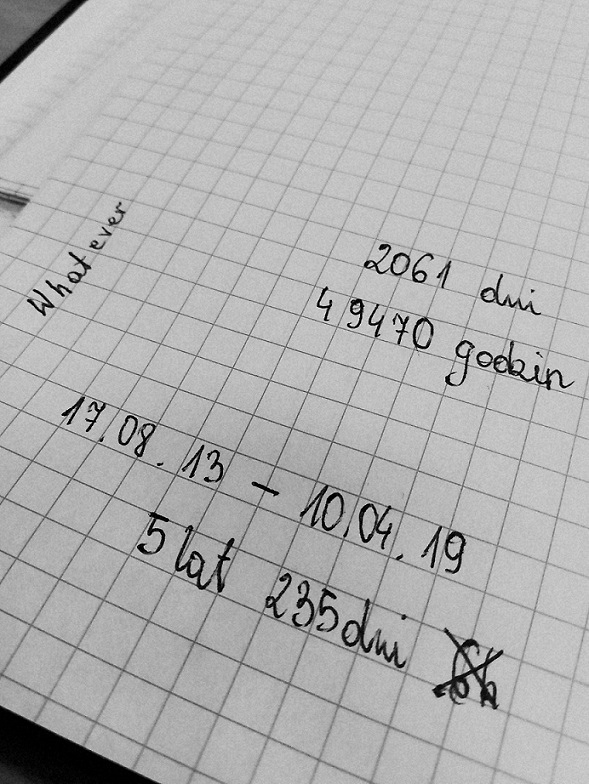 Whatever
2061 dni
49470 godzin
17.08.13 - 10.04.19
5 lat 235 dni